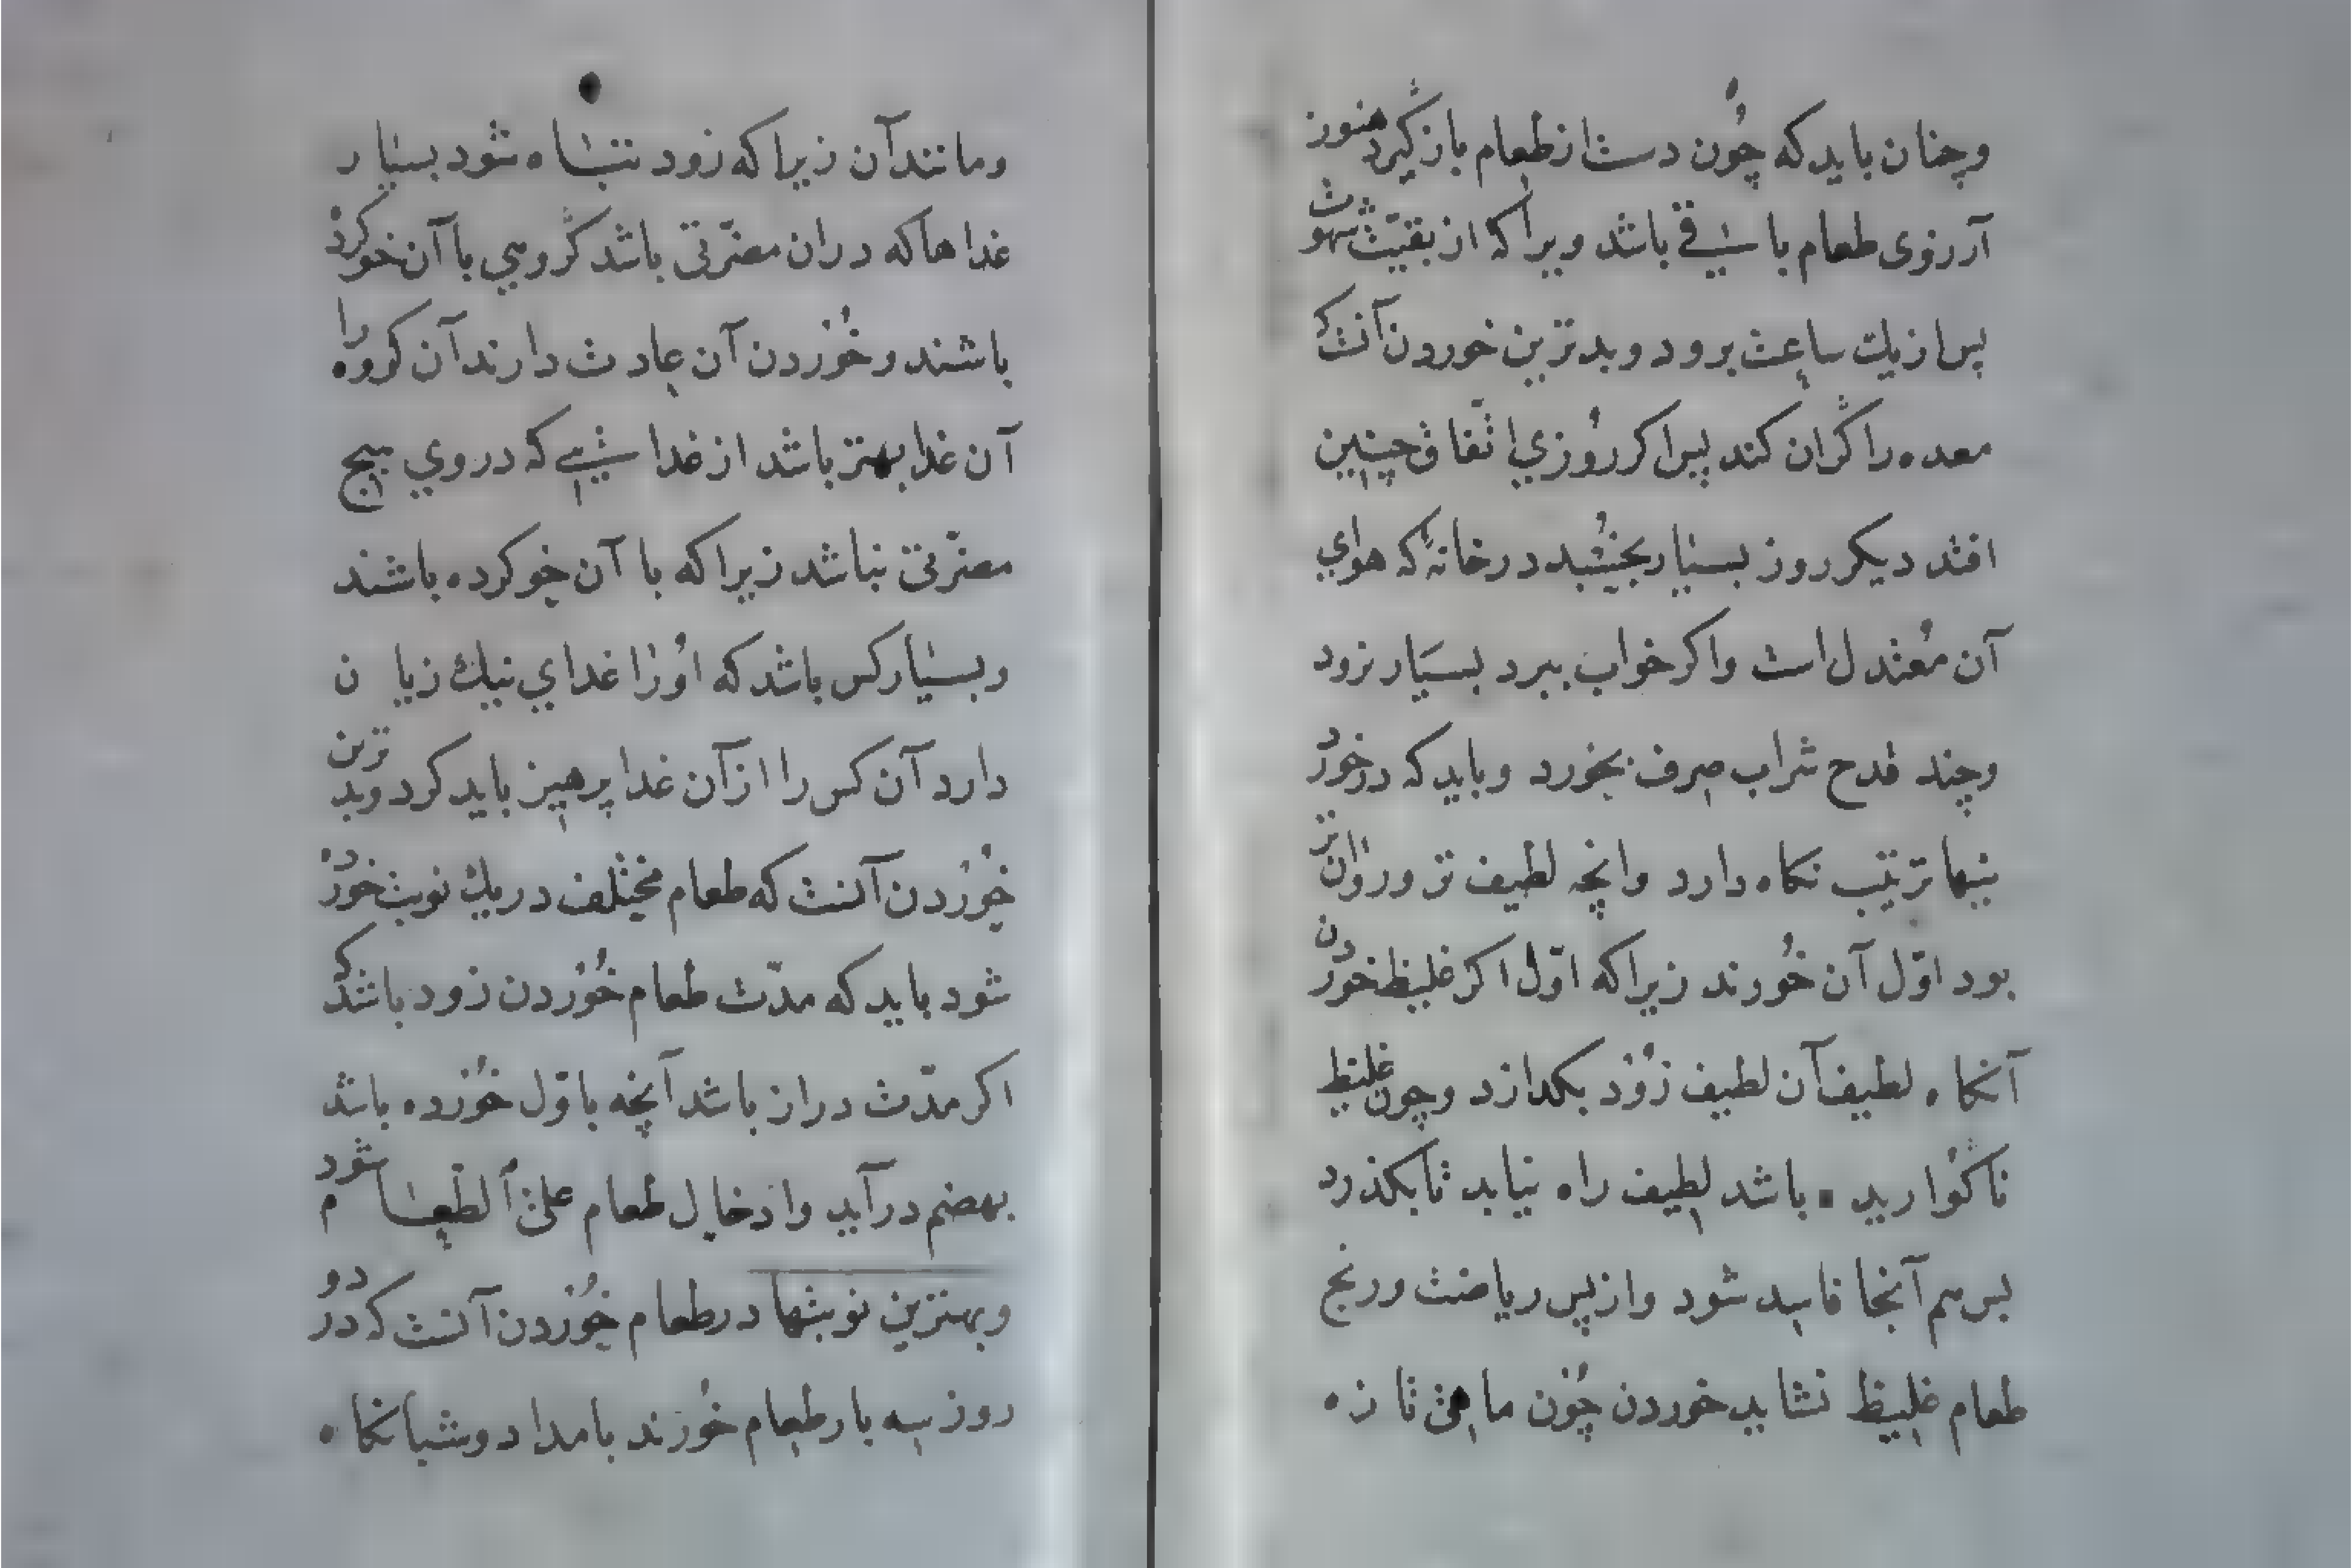 وچنان بايد كه چُون دست از طعام باز گيرد هنوز
آرزوى طعام باقى باشد ويرا كه از بقيّت شهوت
پس از يك ساعت برود و بدترين خوردن آنست كه
معده را گران كند پس اكر رُوزي اتّفاق چنين
افتد ديكر روز بسيار بخُسبد در خانهٔ كه هواي
آن مُعتدل است واكر خواب ببرد بسيَار نرود
وچند قدح شراب صرف بخورد وبايد كه در خورد
نيها ترتيب نكاه دارد وانچه لطيف تر وروان تر
بود اوّل آن خُورند زيرا كه اوّل اكر غليظ خوردن
آنكاه لطيف آن لطيف زُود بكدازد وچون غليظ
ناگوارید باشد لطيف راه نيابد تا بكذرد
پس هم آنجا فاسد شود واز پس رياضت ورنج
طعام غليظ نشايد خوردن چُون ماهى تازه
ومانند آن زيرا كه زود تباه شود بسيار
غدا ها كه دران مضرّتى باشد گروهي با آن خو كرد
باشند وخُوردن آن عادت دارند آن كروه را
آن غدا بهتر باشد از غدا ئى كه در وي هيچ
مضرّتى نباشد زيرا كه با آن خو كرده باشند
وبسيار كس باشد كه اُورا غداي نيك زيان
دارد آن كس را از آن غدا پرهيز بايد كرد وبدترين
خُوردن آنست كه طعام مختلف در يك نوبت خورد
شود بايد كه مدّت طعام خُوردن زود باشد كه
اكر مدّت دراز باشد آنچه باوّل خُورده باشد
بهضم درآيد وادخال طعام على ٱلطّعام شود
وبهترين نوبتها در طعام خُوردن آنست كه در دو
روز سه بار طعام خُورند بامداد وشبانكاه